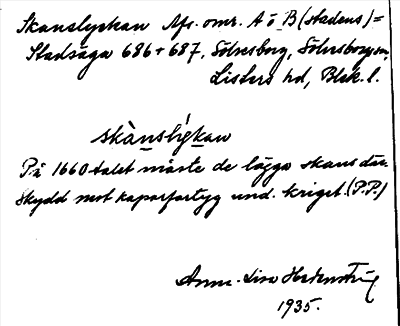 Skanslyckan Äfs. omr. A o B (stadens) =
Stadsäga 686 + 687, Sölvesborg, Sölvesborgs sn,
Listers hd, Blek. l.
skànslýkan
På 1660 talet måste de lägga skans där.
Skydd mot kaparfartyg und. kriget. (P.P.)
Anna-Lisa
1935.